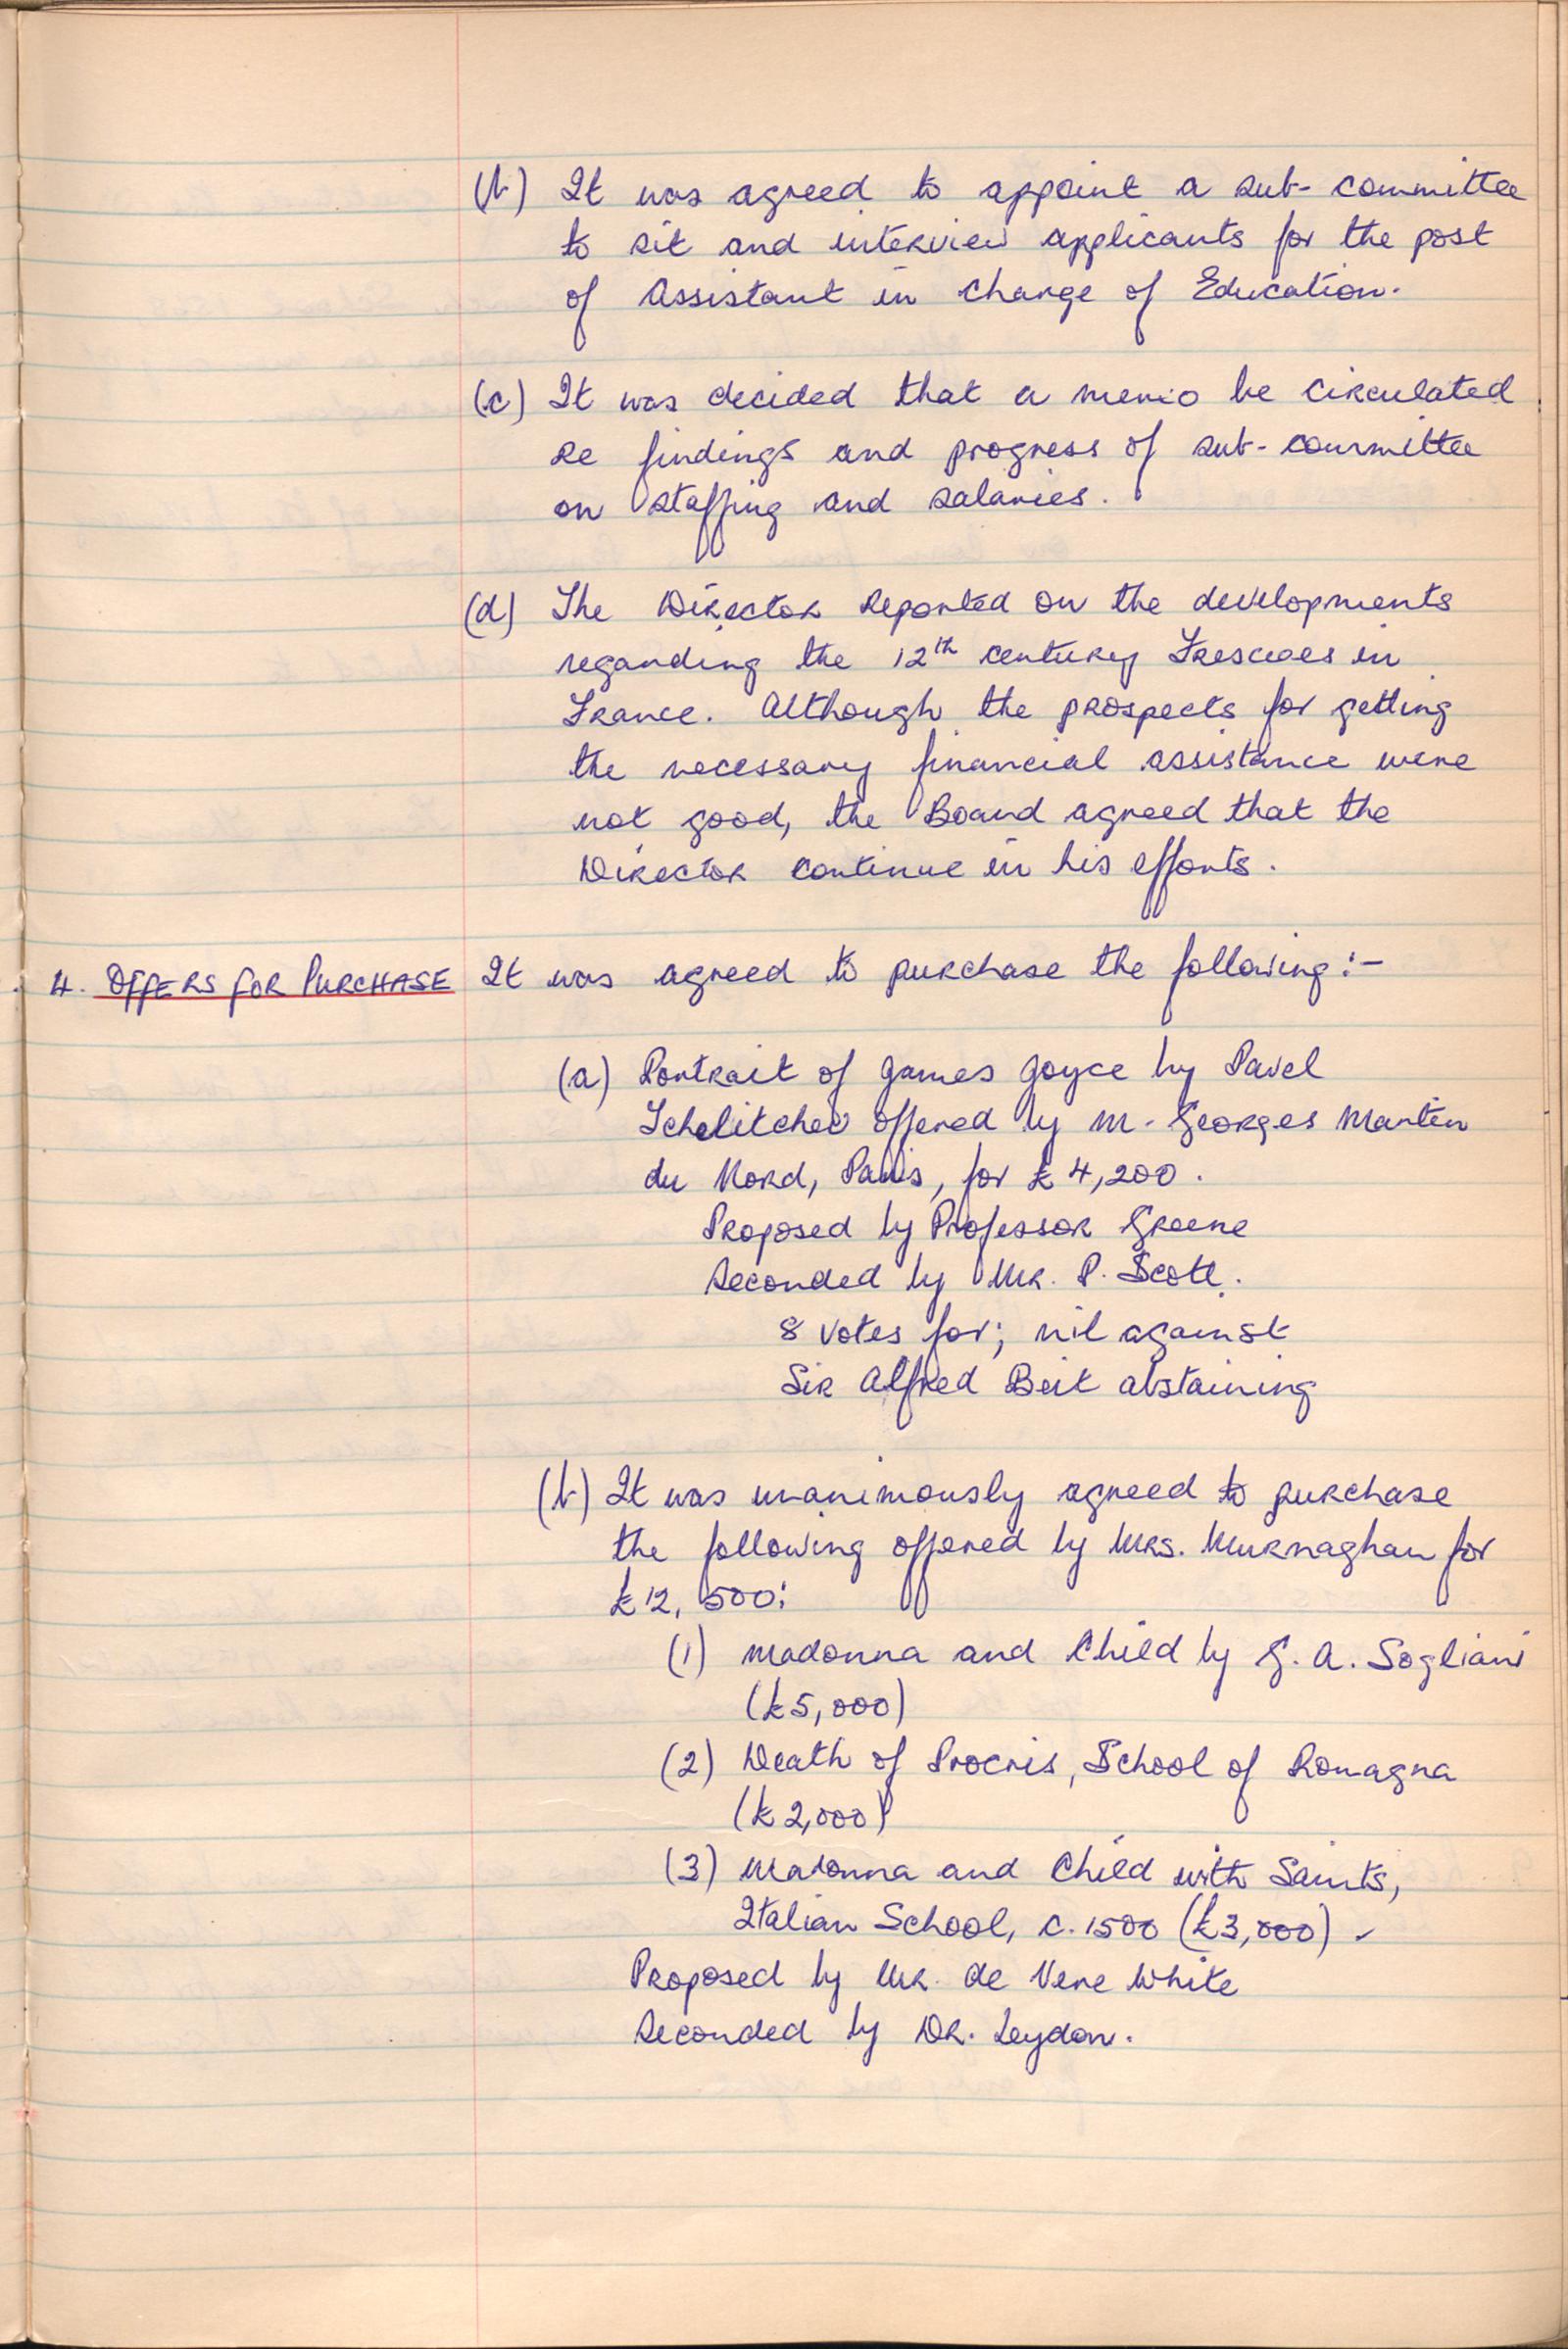 (b) It was agreed to appoint a sub-committee
to sit and interview applicants for the post
of Assistant in Charge of Education.
(c) It was decided that a memo be circulated
re findings and progress of sub-committee
on staffing and salaries.
(d) The Director reported on the developments
regarding the 12th century Frescoes in
France. Although the prospects for getting
the necessary financial assistance were
not good, the Board agreed that the
Director continue in his efforts.
4. OFFERS FOR PURCHASE It was agreed to purchase the following:-
(a) Portrait of James Joyce by Pavel
Tchelitchev offered by M. Georges Martin
du Nord, Paris, for £4,200.
Proposed by Professor Greene
Seconded by Mr. P. Scott.
8 votes for; nil against
Sir Alfred Beit abstaining
(b) It was unanimously agreed to purchase
the following offered by Mrs. Murnaghan for
£12,500:
(1) Madonna and Child by G. A. Sogliani
(£5,000)
(2) Death of Procris, School of Romagna
(£2,000)
(3) Madonna and Child with Saints,
Italian School, c. 1500 (£3,000)
Proposed by Mr. de Vere White
Seconded by Dr. Leydon.